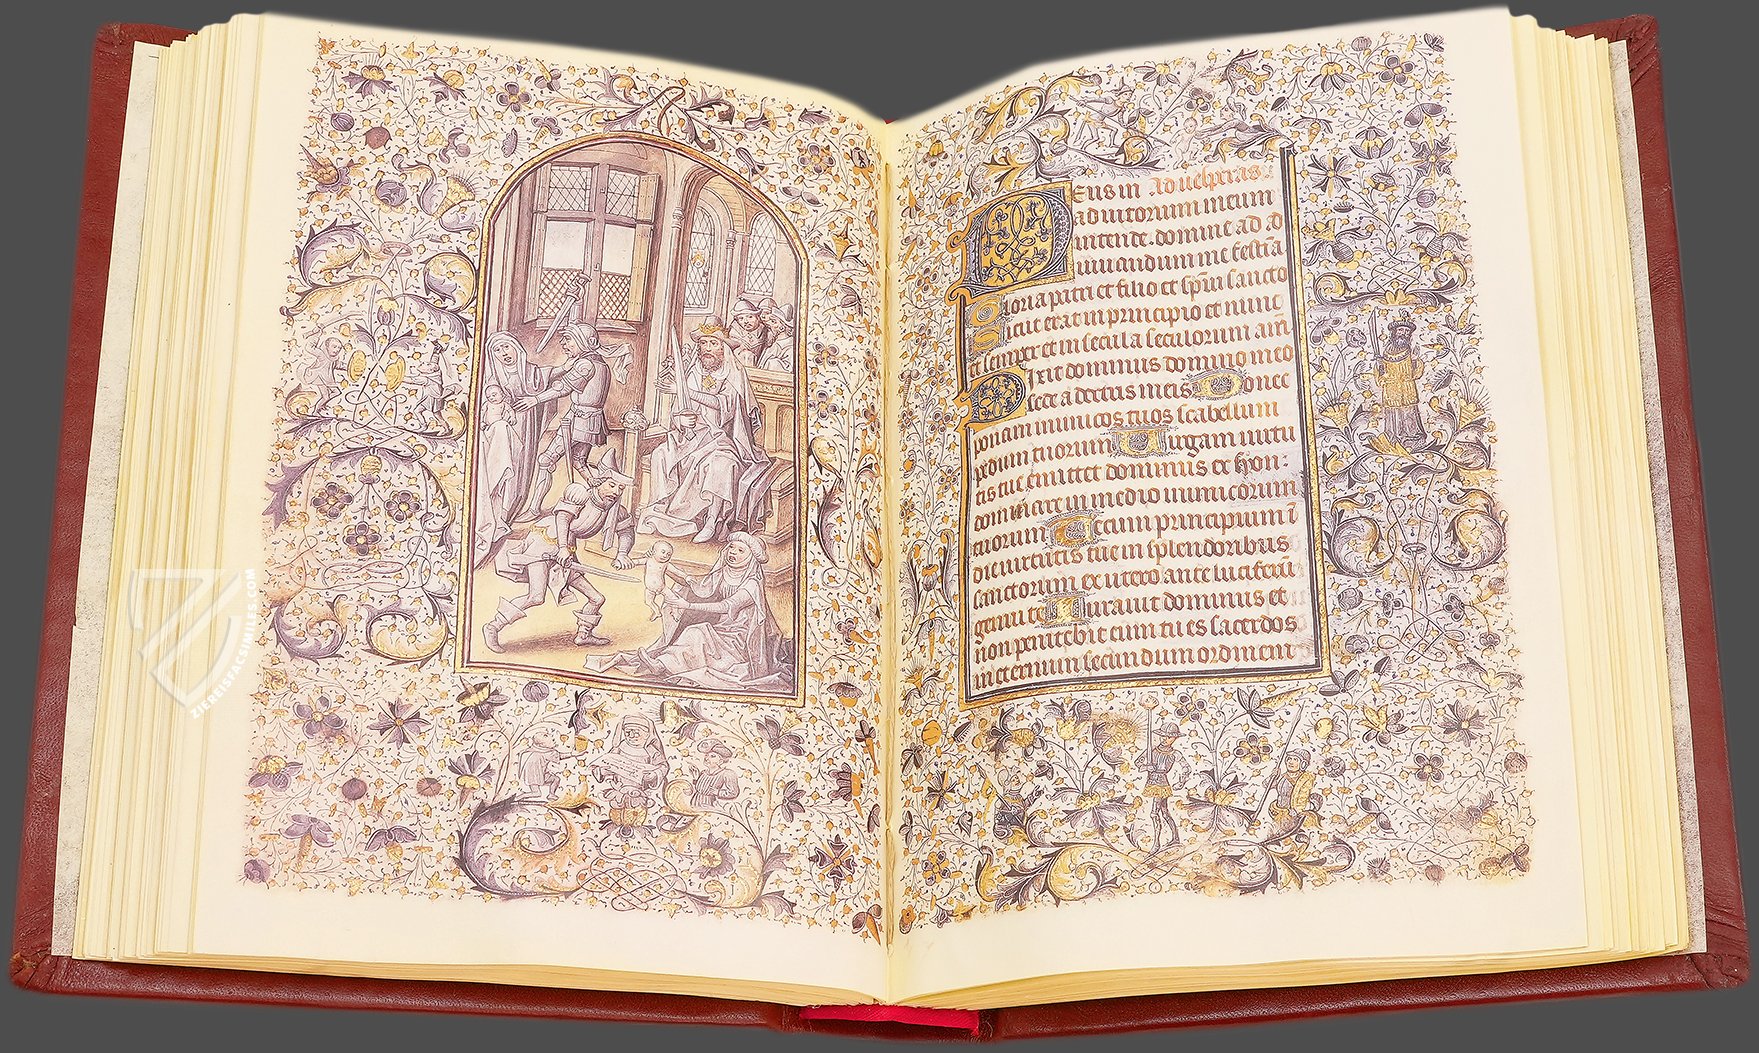 Deus in Ad vesperas
adiutorium meum
intende. domine ad ad
iuuandum me festīa
Gloria patri et filio et spūi sancto
Sicut erat in principio et nunc
et semper et in secula seculorum amē
Dixit dominus domino meo
sede a dextris meis Donec
ponam inimicos tuos scabellum
pedum tuorum Uirgam uirtu
tis tue emittet dominus ex syon:
dominare in medio inimicorum
tuorum Tecum principium ī
die uirtutis tue in splendoribus
sanctorum ex utero ante luciferū
genui te Iurauit dominus et
non penitebit eum tu es sacerdos
in eternum secundum ordinem
ZIEREISFACSIMILES.COM